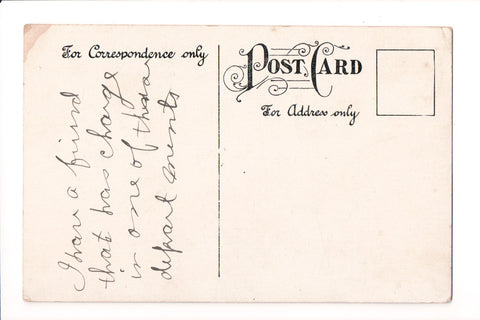 For Correspondence only
POST CARD
For Address only
I have a friend
that has charge
in one of these
depart ments